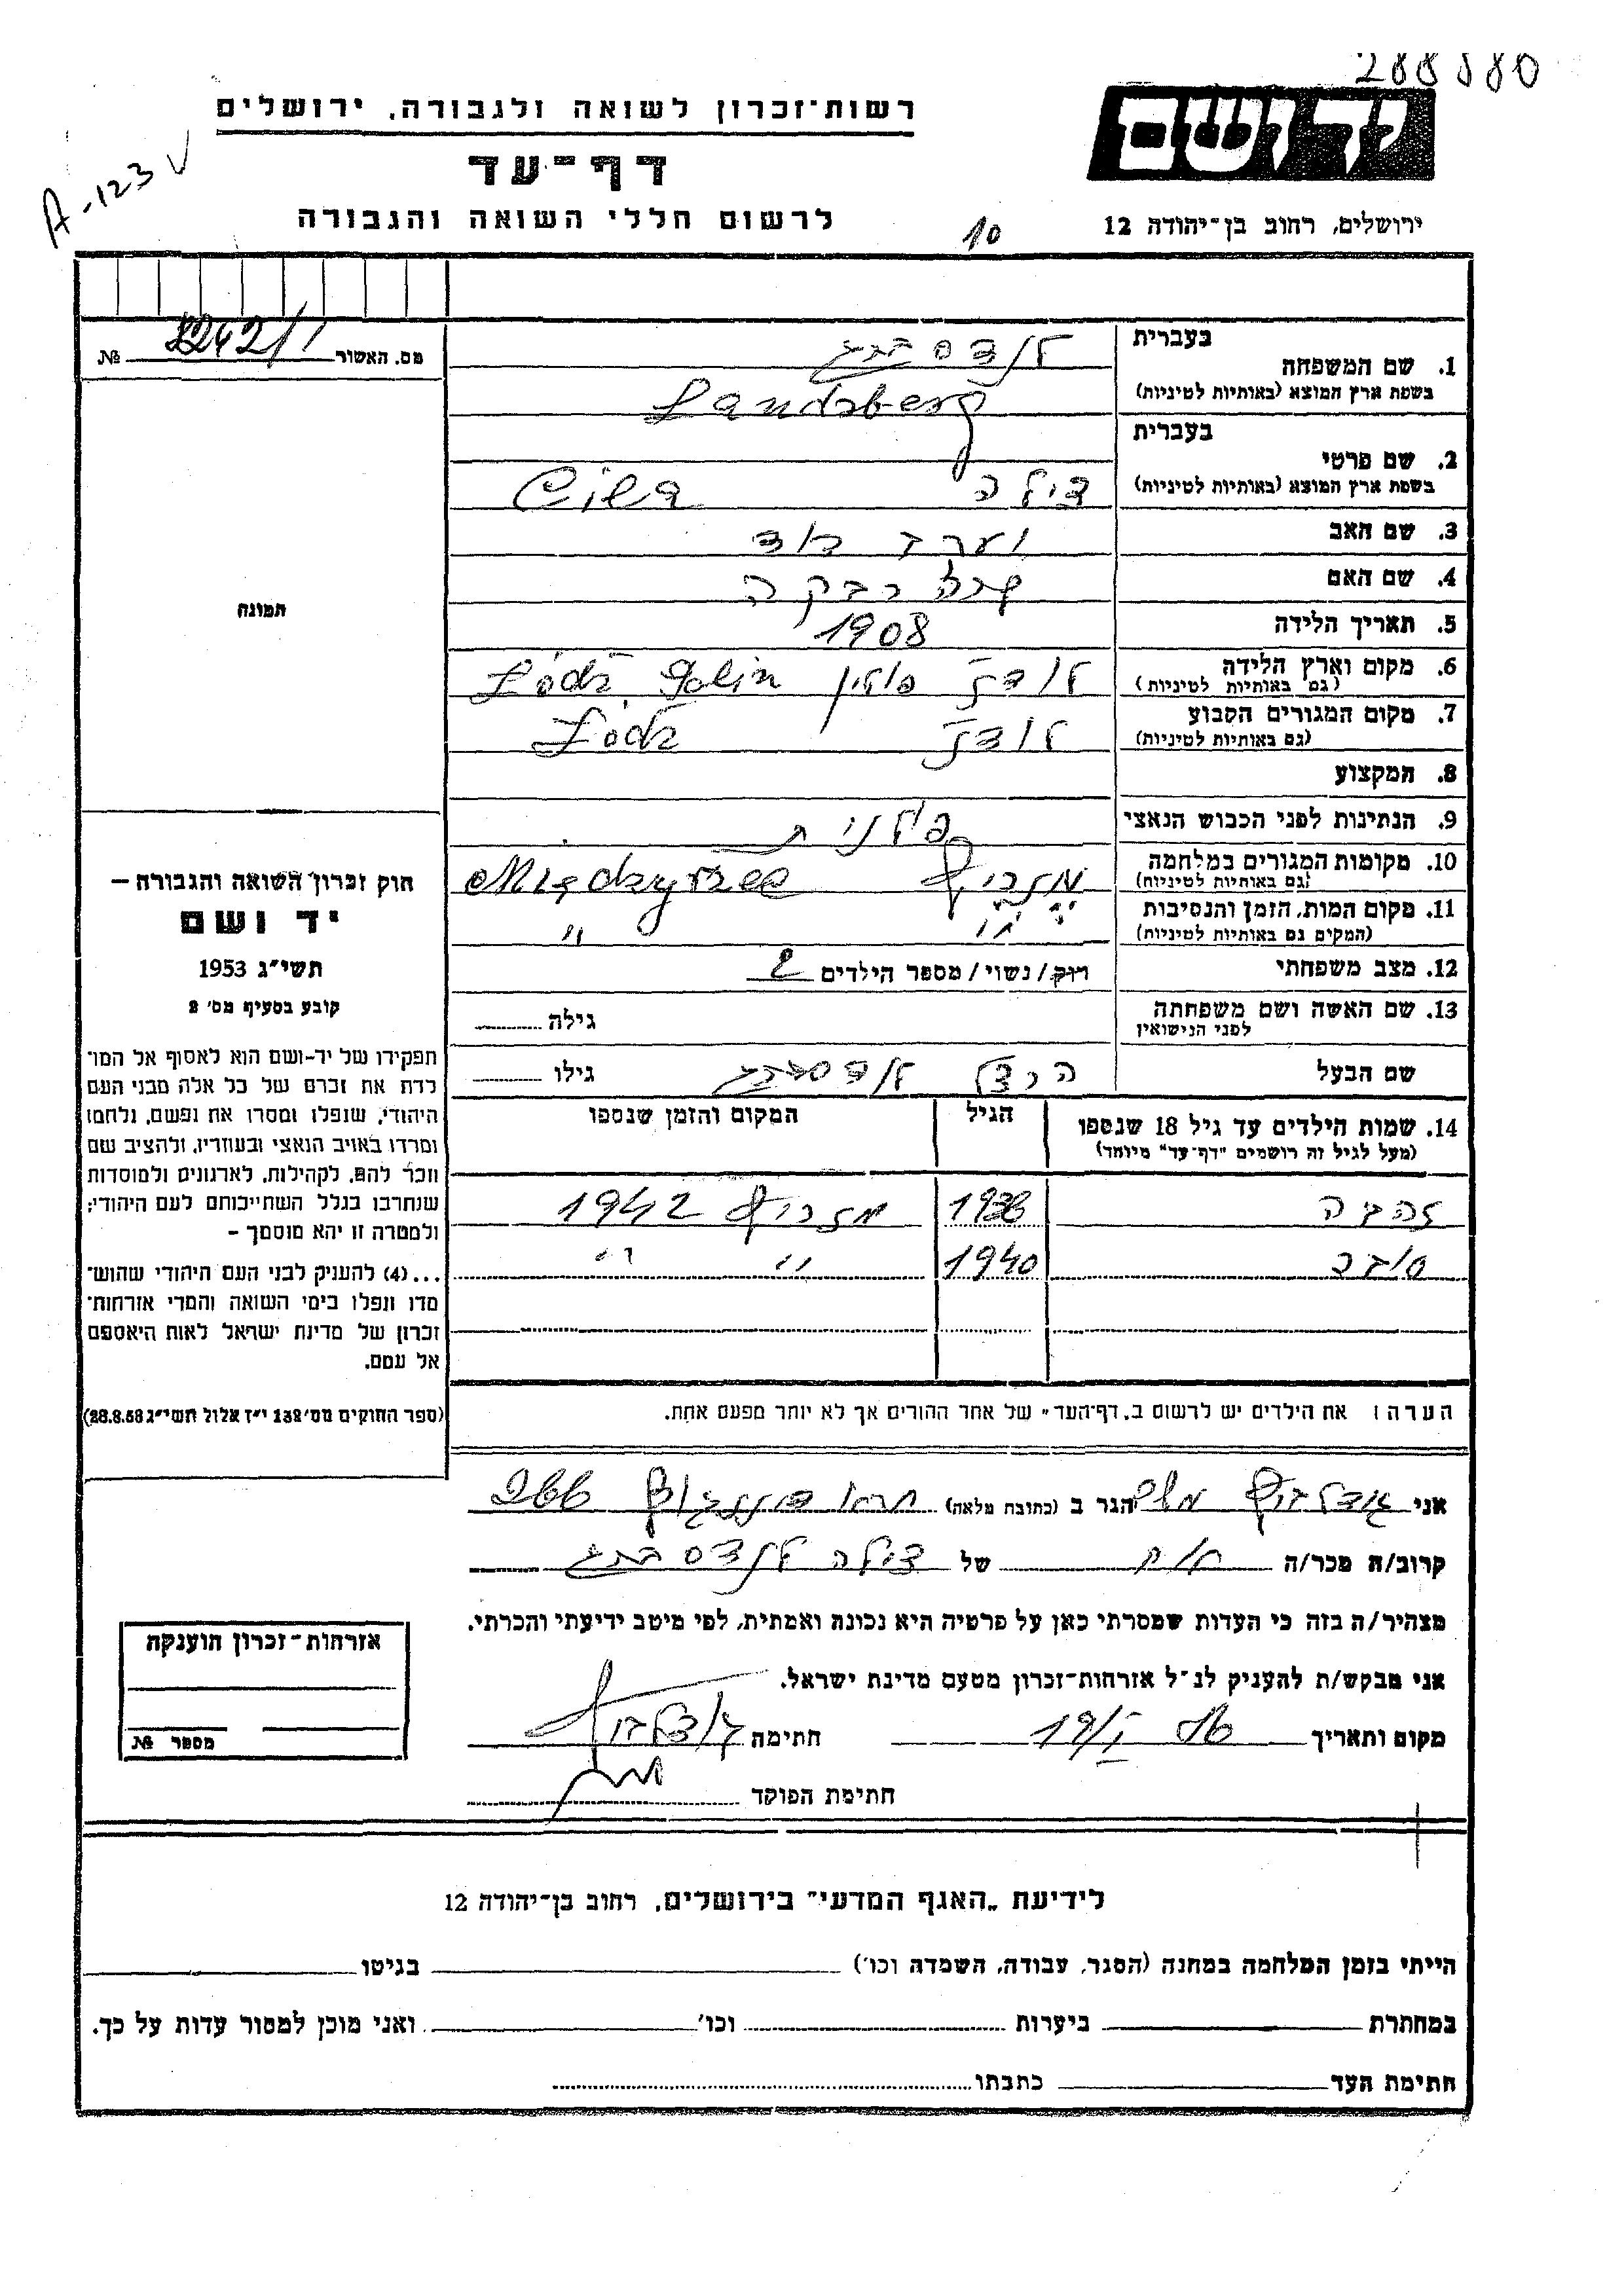 288880
רשות-זכרון לשואה ולגבורה, ירושלים
ידושם
A-123 V
דף-עד
לרשום חללי השואה והגבורה
10
ירושלים, רחוב בן-יהודה 12
מס. האשור № 2242/1
תמונה
חוק זכרון השואה והגבורה —
יד ושם
תשי״ג 1953
קובע בסעיף מס׳ 2
תפקידו של יד-ושם הוא לאסוף אל המו-
לדת את זכרם של כל אלה מבני העם
היהודי, שנפלו ומסרו את נפשם, נלחמו
ומרדו באויב הנאצי ובעוזריו, ולהציב שם
וזכר להם, לקהילות, לארגונים ולמוסדות
שנחרבו בגלל השתייכותם לעם היהודי;
ולמטרה זו יהא מוסמך –
...(4) להעניק לבני העם היהודי שהוש-
מדו ונפלו בימי השואה והמרי אזרחות-
זכרון של מדינת ישראל לאות היאספם
אל עמם.
(ספר החוקים מס׳ 132 י״ז אלול תשי״ג 28.8.53)
בעברית לנדסברג
1. שם המשפחה
בשפת ארץ המוצא (באותיות לטיניות) Landsberg
בעברית
2. שם פרטי
בשפת ארץ המוצא (באותיות לטיניות) צילה
3. שם האב דוד
4. שם האם רבקה
5. תאריך הלידה 1908
6. מקום וארץ הלידה לודז׳ פולין Łódź Polin
(גם באותיות לטיניות)
7. מקום המגורים הקבוע לודז׳ Łódź
(גם באותיות לטיניות)
8. המקצוע
9. הנתינות לפני הכבוש הנאצי פולנית
10. מקומות המגורים במלחמה Międzyrzec
(גם באותיות לטיניות)
11. מקום המות, הזמן והנסיבות " "
(המקום גם באותיות לטיניות)
12. מצב משפחתי רוק/נשוי/מספר הילדים 2
13. שם האשה ושם משפחתה גילה
לפני הנישואין
שם הבעל הרצל לנדסברג גילו
14. שמות הילדים עד גיל 18 שנספו הגיל המקום והזמן שנספו
(מעל לגיל זה רושמים "דף-עד" מיוחד)
זהבה 1938 1942
1940 " "
הערה: את הילדים יש לרשום ב„דף-העד" של אחד ההורים אך לא יותר מפעם אחת.
אני הגר ב (כתובת מלאה) 266
קרוב/ה מכר/ה של צילה לנדסברג
מצהיר/ה בזה כי העדות שמסרתי כאן על פרטיה היא נכונה ואמתית, לפי מיטב ידיעתי והכרתי.
אני מבקש/ת להעניק לנ״ל אזרחות-זכרון מטעם מדינת ישראל.
מקום ותאריך 19/V חתימה
חתימת הפוקד
אזרחות-זכרון הוענקה
מספר №
לידיעת „האגף המדעי" בירושלים, רחוב בן-יהודה 12
הייתי בזמן המלחמה במחנה (הסגר, עבודה, השמדה וכו׳) בגיטו
במחתרת ביערות וכו׳ ואני מוכן למסור עדות על כך.
חתימת העד כתבתו